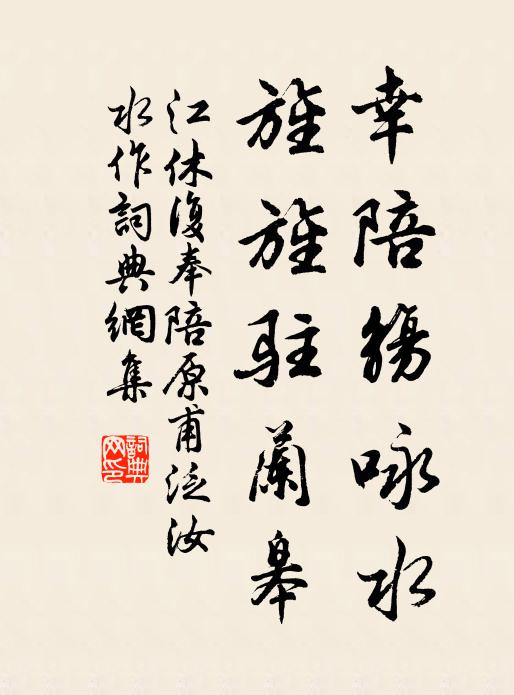 幸陪觴咏水
旌旌駐蘭皋
江休復奉陪原甫泛汝
水作詞典網集
詞典网印